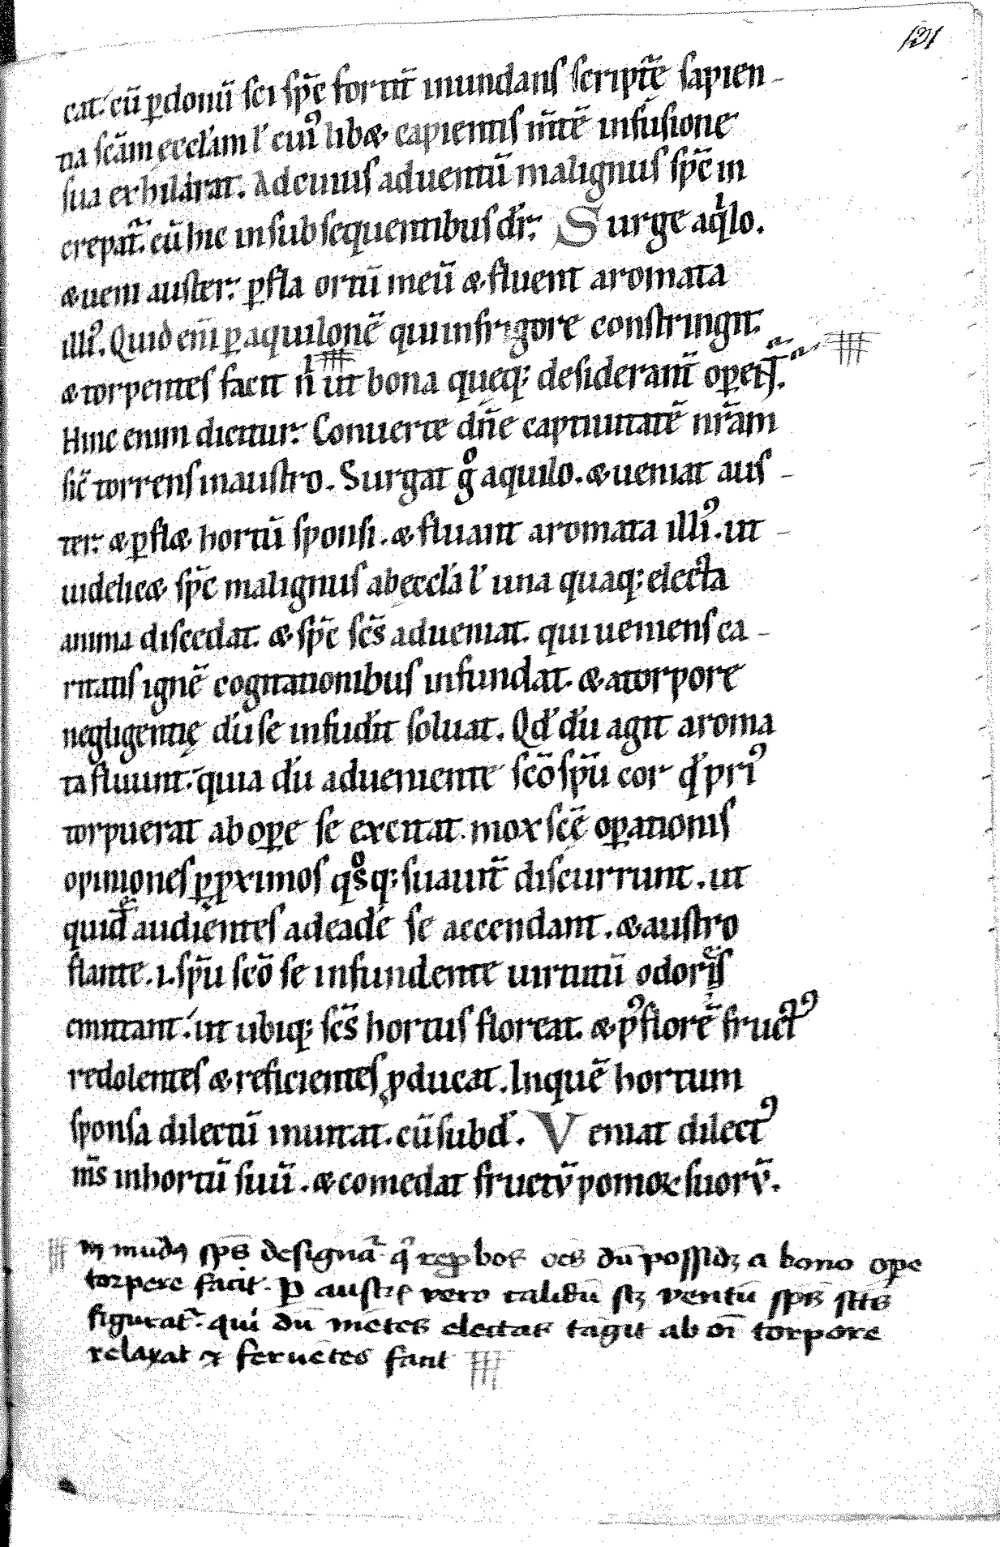 131
cat. cū p donū sci sp̄c fortit̄ inundans scriptr̄e sapien-
tia scām eccl'am l' cuiꝰ libæ capientis m̄tē infusione
sua exhilarat. Ad cuius aduentū malignus sp̄c in
crepat̄. cū hic in subsequentibus dr̄. Surge aq̇lo.
& ueni auster. ꝑfla ortū meū & fluent aromata
illiꝰ. Quid eni ꝑ aquilonē qui in frigore constringit
& torpentes facit n̄ ut bona queq; desiderant̄ oper&ur.
Hinc enim dicitur. Conuerte dn̄e captiuitatē nr̄am
sic̄ torrens in austro. Surgat g̊ aquilo. & ueniat aus-
ter. & ꝑfl& hortū sponsi. & fluant aromata illiꝰ. ut-
uidelic& sp̄c malignus ab eccl'a l' una quaq; electa
anima discedat. & sp̄c sc̄s adueniat. qui ueniens ca-
ritatis ignē cogitationibus infundat. & a torpore
negligentię du̅ se infud'it soluat. Qd' du̅ agit aroma
ta fluunt. quia du̅ adueniente sc̄o sp̄u cor qd' priꝰ
torpuerat ab oꝑe se excitat. mox sc̄e oꝑationis
opiniones ꝑ ꝓximos q̊sq; suauit̄ discurrunt. ut
quidē audientes ad eadē se accendant. & austro
flante .i. sp̄u sc̄o se infundente uirtutū odoris
emittant. ut ubiq; sc̄s hortus floreat. & pꝰ florē fructꝰ
redolentes & reficientes ꝓducat. In quē hortum
sponsa dilectū inuitat. cū subd'. Veniat dilectꝰ
m̄s in hortū suū. & comedat fructū pomoꝝ suorū.
m mūdꝰ sp̄s designat̄ q' rep bos oēs dū possidꝫ a bono ope
torpere facit. P austrū vero calidū sꝫ ventū sp̄s sc̄s
figurat̄. qui dū mētes electas tāgit ab oī torpore
relaxat & feruētes facit